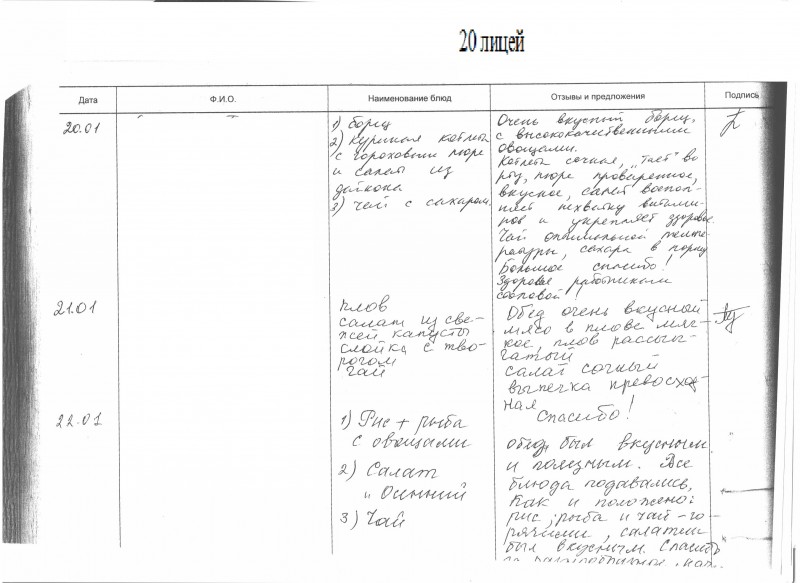 20 лицей
Дата
Ф.И.О.
Наименование блюд
Отзывы и предложения
Подпись
20.01
1) борщ
2) куриная котлета
с гороховым пюре
и салат из
дайкона
3) чай с сахаром.
Очень вкусный борщ,
с высококачественными
овощами.
Котлета сочная, "тает" во
рту, пюре проваренное,
вкусное, салат воспол-
няет нехватку витами-
нов и укрепляет здоровье
Чай оптимальной темпе-
ратуры, сахара в норму
Большое спасибо!
Здоровья работникам
столовой!
21.01
плов
салат из све-
жей капусты
слойка с тво-
рогом
чай
Обед очень вкусный
мясо в плове мяг-
кое, плов рассып-
чатый
салат сочный
выпечка превосход-
ная
Спасибо!
22.01
1) Рис + рыба
с овощами
2) Салат
"Осенний
3) Чай
обед был вкусным
и полезным. Все
блюда подавались,
как и положено:
рис, рыба и чай - го-
рячими, салатик
был вкусным. Спасибо